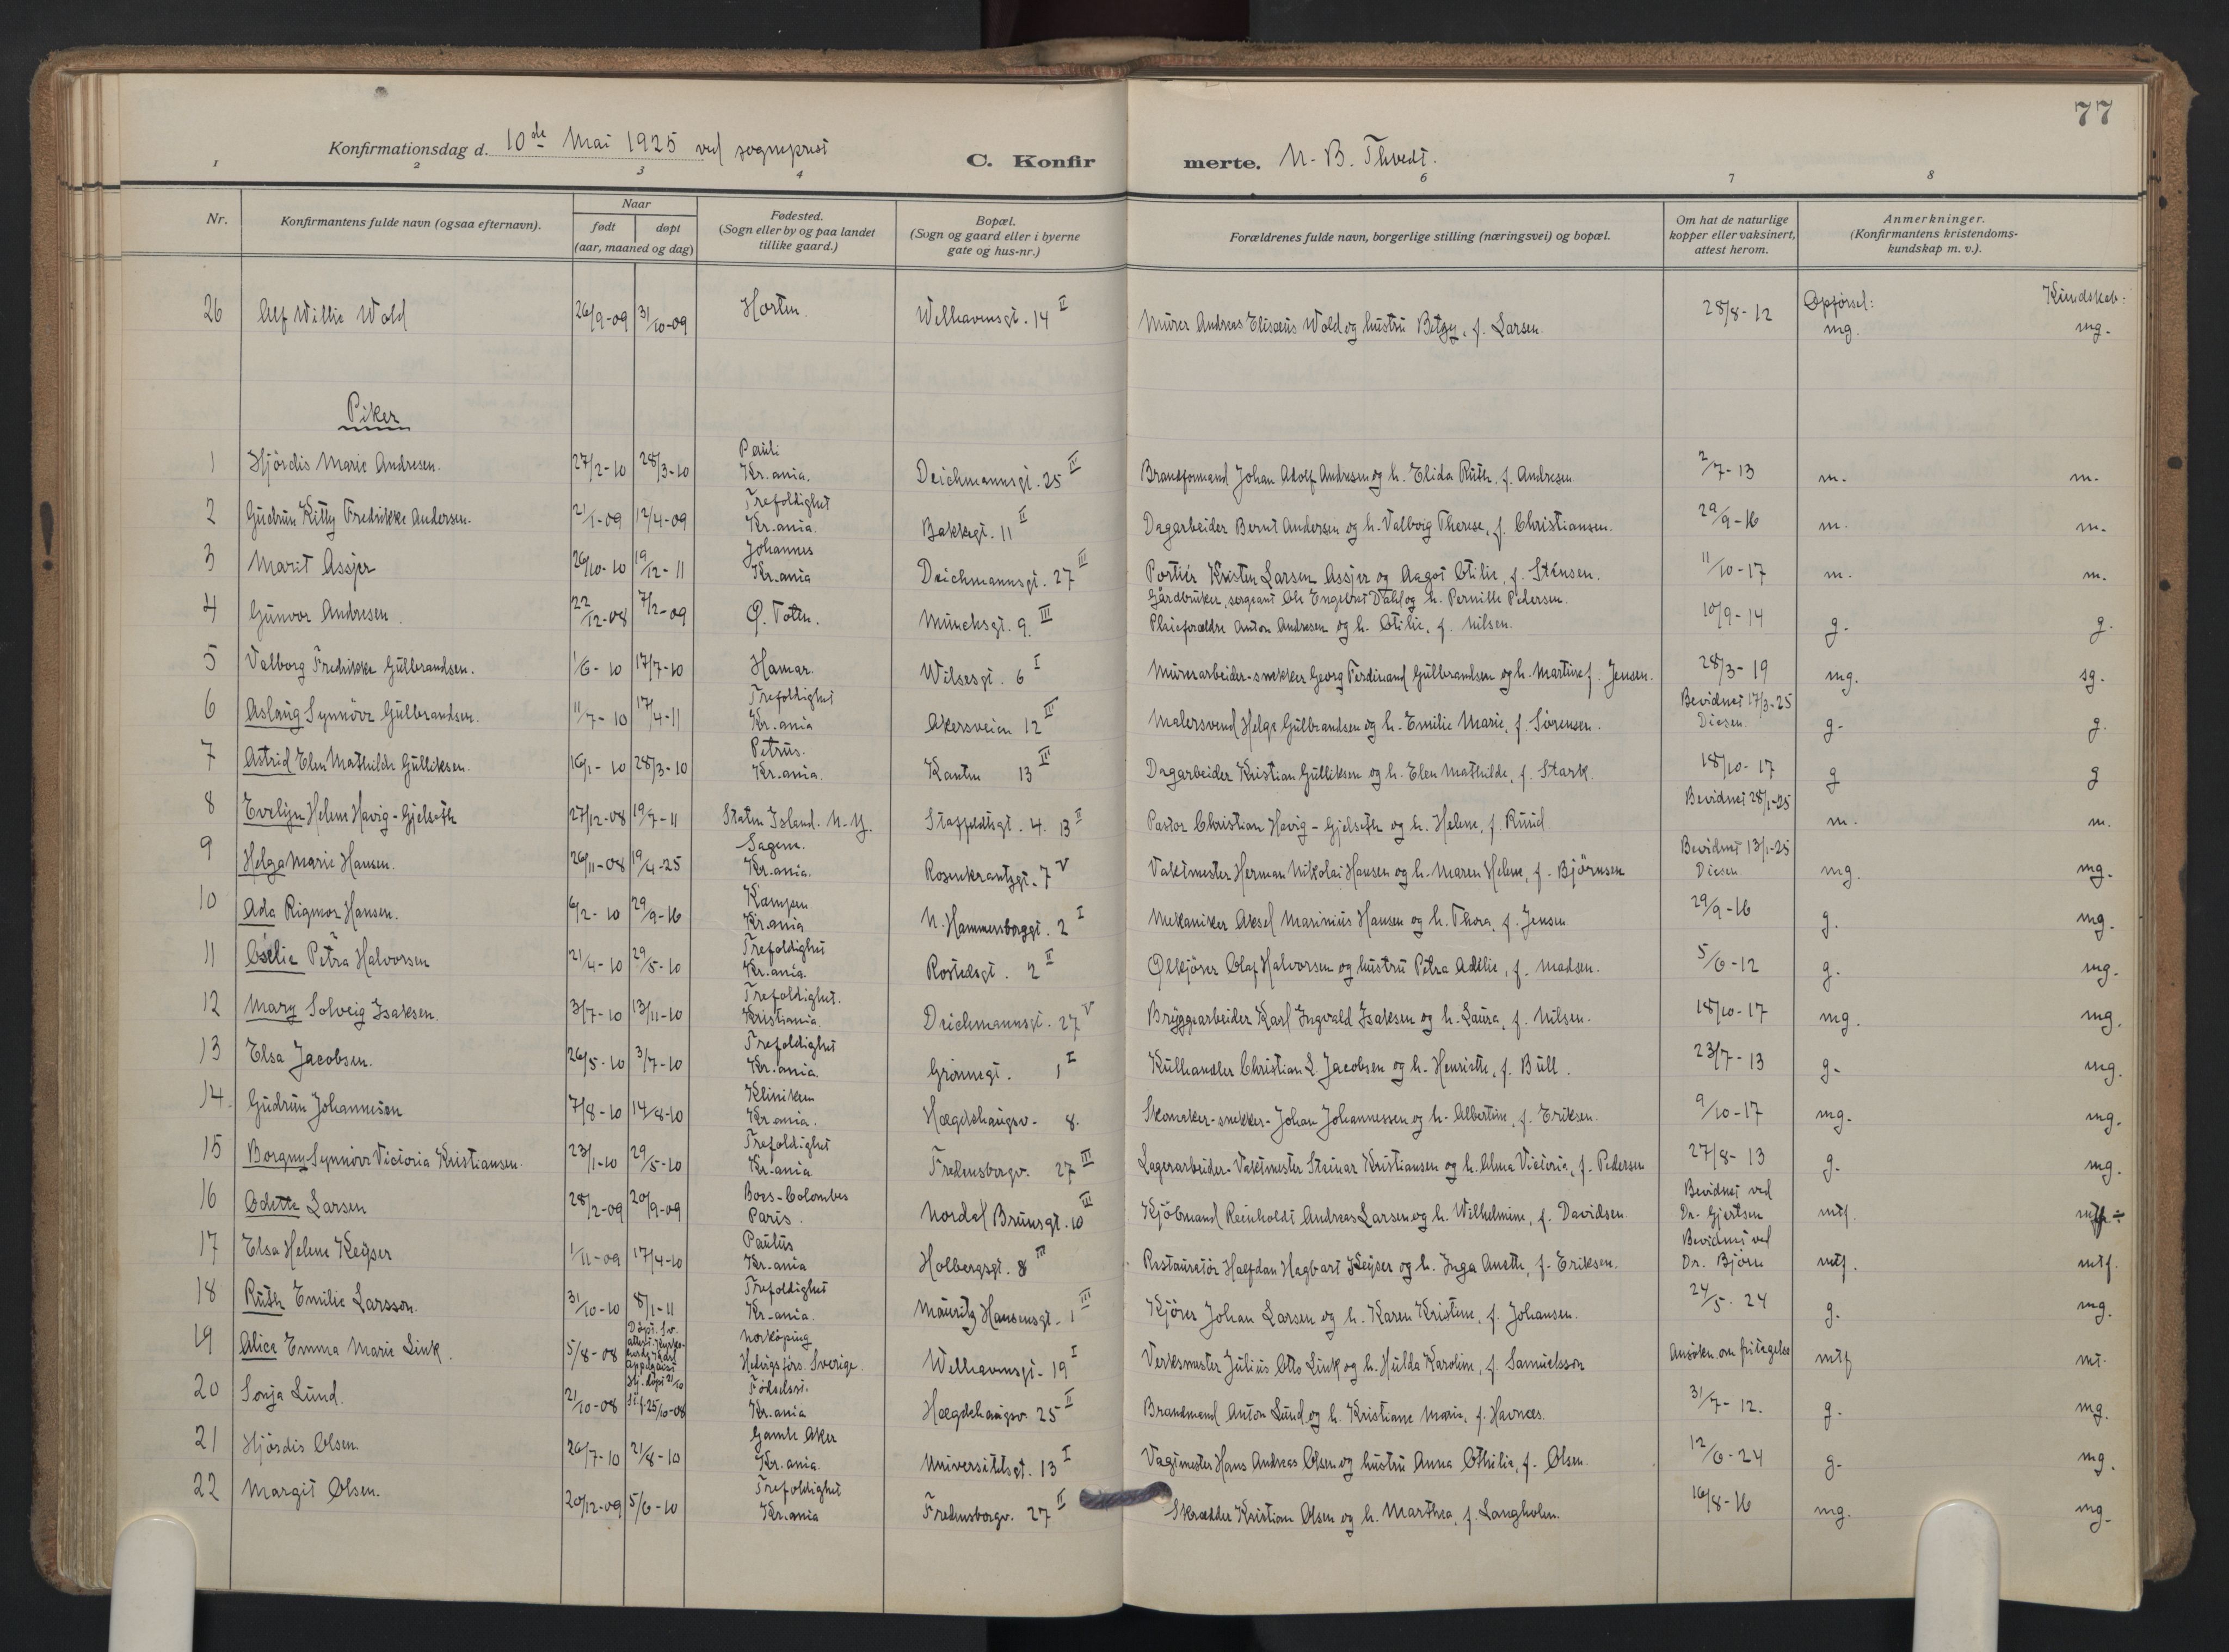 77
Konfirmationsdag d. 10de Mai 1925 ved sogneprest C. Konfirmerte. N. B. Thvedt.
1 2 3 4 6 7 8
Nr. Konfirmantens fulde navn (ogsaa efternavn). Naar født døpt (aar, maaned og dag) Fødested. (Sogn eller by og paa landet tillike gaard.) Bopæl. (Sogn og gaard eller i byerne gate og hus-nr.) Forældrenes fulde navn, borgerlige stilling (næringsvei) og bopæl. Om hat de naturlige kopper eller vaksinert, attest herom. Anmerkninger. (Konfirmantens kristendoms-kundskap m. v.).
Opførsel: Kundskab:
26 Alf Willie Wold 26/9-09 31/10-09 Horten. Welhavensgt. 14 II Murer Andreas Elisæus Wold og hustru Betzy, f. Larsen. 28/8-12 mg. mg.
Piker
1 Hjördis Marie Andresen. 27/2-10 28/3-10 Pauli Kr.ania. Deichmannsgt. 25 IV Brandformand Johan Adolf Andresen og h. Elida Ruth, f. Andresen 2/7-13 m. m.
2 Gudrun Kitty Fredrikke Andersen. 21/1-09 12/4-09 Trefoldighet Kr.ania. Bakkegt. 11 II Dagarbeider Bernt Andersen og h. Valborg Therese, f. Christiansen. 29/9-16 m. m.
3 Marit Assjer 26/10-10 19/12-11 Johannes Kr.ania Deichmannsgt. 27 III Portier Kristen Larsen Assjer og Aagot Otilie, f. Stensen. 11/10-17 m. m.
4 Gunvor Andresen. 22/12-08 7/2-09 Ø. Toten. Munchsgt. 9. III Gårdbruker, sergeant Ole Engebret Dahl og h. Pernille Pedersen. Pleieforældre Anton Andresen og h. Otilie, f. Nilsen. 10/9-14 g. g.
5 Valborg Fredrikke Gulbrandsen. 1/6-10 17/7-10 Hamar. Wilsesgt. 6 I Murerarbeider-snekker Georg Ferdinand Gulbrandsen og h. Martine f. Jensen. 28/3-19 mg. sg.
6 Aslaug Synnöve Gulbrandsen. 11/7-10 17/4-11 Trefoldighet Kr.ania Akersveien 12 III Malersvend Helge Gulbrandsen og h. Emilie Marie, f. Sörensen. Bevidnet 17/3-25 Diesen. g. g.
7 Astrid Elen Mathilde Gulliksen. 16/1-10 28/3-10 Petrus. Kr.ania. Kanten 13 IV Dagarbeider Kristian Gulliksen og h. Elen Mathilde, f. Stark. 18/10-17 g g
8 Evelyn Helene Havig-Gjelseth 27/12-08 19/7-11 Staten Island. N.Y. Staffeldtsgt. 4. B II Pastor Christian Havig-Gjelseth og h. Helene, f. Ruud Bevidnet 28/1-25 m. m.
9 Helga Marie Hansen. 26/11-08 19/4-25 Sagene. Kr.ania. Rosenkrantzgt. 7 V Vaktmester Herman Nikolai Hansen og h. Maren Helene, f. Björnsen Bevidnet 13/1-25 Diesen mg. mg.
10 Ada Rigmor Hansen. 6/2-10 29/9-16 Kampen Kr.ania N. Hammersborggt. 2 I Mekaniker Aksel Marinius Hansen og h. Thora, f. Jensen 29/9-16 g. mg.
11 Petra Halvorsen 21/4-10 29/5-10 Trefoldighet Kr.ania. Rostedsgt. 2 II Ølkjörer Olaf Halvorsen og hustru Petra Adelie, f. Madsen. 5/6-12 g. mg.
12 Mary Solveig Isaksen. 3/7-10 13/11-10 Trefoldighet. Kristiania. Deichmannsgt. 27 V Bryggearbeider Karl Ingvald Isaksen og h. Laura, f. Nilsen. 18/10-17 mg. mg.
13 Elsa Jacobsen. 26/5-10 3/7-10 Trefoldighet Kr.ania. Grönnegt. 1 I Kulhandler Christian L. Jacobsen og h. Henriette, f. Bull. 23/7-13 g. mg.
14. Gudrun Johannesen 7/8-10 14/8-10 Kliniken Kr.ania. Hægdehaugsv. 8. Skomaker-snekker-Johan Johannessen og h. Albertine, f. Eriksen. 9/10-17 mg. mg.
15 Borgny Synnöve Victoria Kristiansen. 23/1-10 29/5-10 Trefoldighet Kr.ania Fredensborgv. 27 III Lagerarbeider-Vaktmester Steinar Kristiansen og h. Alma Victoria, f. Pedersen 27/8-13 g. mg.
16 Odette Larsen 28/2-09 20/9-09 Boes-Colombes Paris. Nordal Brunsgt. 10 III Kjöbmand Reinholdt Andreas Larsen og h. Wilhelmine, f. Davidsen. Bevidnet ved Dr. Gjertsen mtf.
17 Elsa Helene Keyser 1/11-09 17/4-10 Paulus Kr.ania Holbergsgt. 8 III Restauratör Halfdan Hagbart Keyser og h. Inga Anette, f. Eriksen. Bevidnet ved Dr. Björn mtf. mtf.
18 Ruth Emilie Larsson. 31/10-10 8/1-11 Trefoldighet Kr.ania. Mauritz Hansensgt. 1 III Kjörer Johan Larsen og h. Karen Kristine, f. Johansen. 24/5-24 g. mg.
19 Alice Emma Marie Link. 5/8-08 Norköping Hedvigs förs. Sverige. Welhavensgt. 19 I Verksmester Julius Otto Link og h. Hulda Karoline, f. Samuelsson Ansökn. om fritagelse mtf mt.
20 Sonja Lund. 21/10-08 Hj. döpt 21/10 St. f. 25/10-08 Födselsst. Kr.ania Hægdehaugsv. 25 II Brandmand Anton Lund og h. Kristiane Marie, f. Havnæs. 31/7-12. g. mg.
21 Hjördis Olsen. 26/7-10 21/8-10 Gamle Aker Kr.ania. Universitetsgt. 13 I Vagtmester Hans Andreas Olsen og hustru Anna Othilie, f. Olsen. 12/6-24 g. mg.
22 Margit Olsen. 20/12-09 5/6-10 Trefoldighet Kr.ania Fredensborgv. 27 II Skrædder Kristian Olsen og h. Marthea, f. Langholen. 16/8-16 mg. mg.